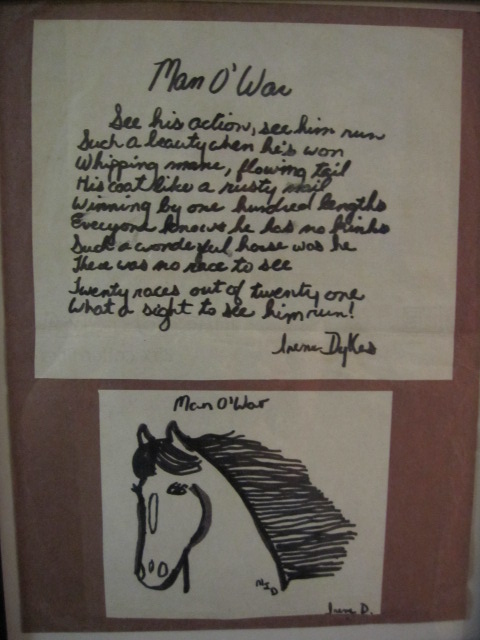 Man O'War
See his action, see him run
Such a beauty when he's won
Whipping mane, flowing tail
His coat like a rusty nail
Winning by one hundred lengths
Everyone knows he has no
Such a wonderful horse was he
There was no race to see
Twenty races out of twenty one
What a sight to see him run!
Irene Dykes
Man O'War
Irene D.